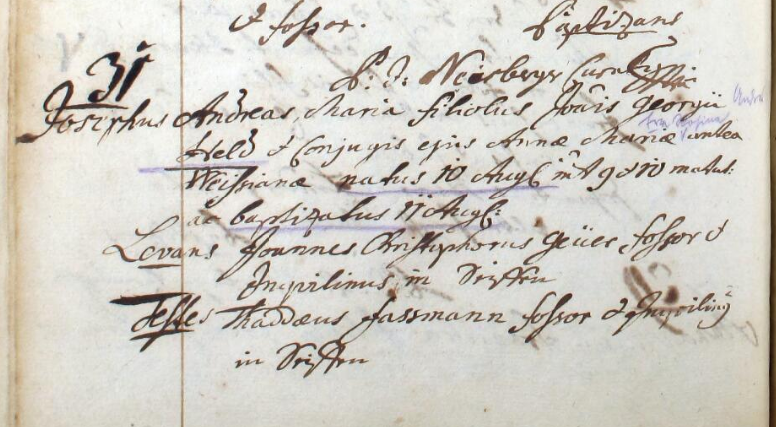 & fossor. Baptizans
P: J: Neisberger Curatus
31
Josephus Andreas Maria filiolus Joãis Georgii
Held & Conjugis ejus Annæ Mariæ antea
Weissianæ natus 10 Augl int 9 & 10 matut:
ac baptizatus 11 Augl:
Levans Joannes Christophorus Geües fossor &
Inquilinus in Seiffen
Testes Thaddæus Fassmann fossor & Inquilinq
in Seiffen